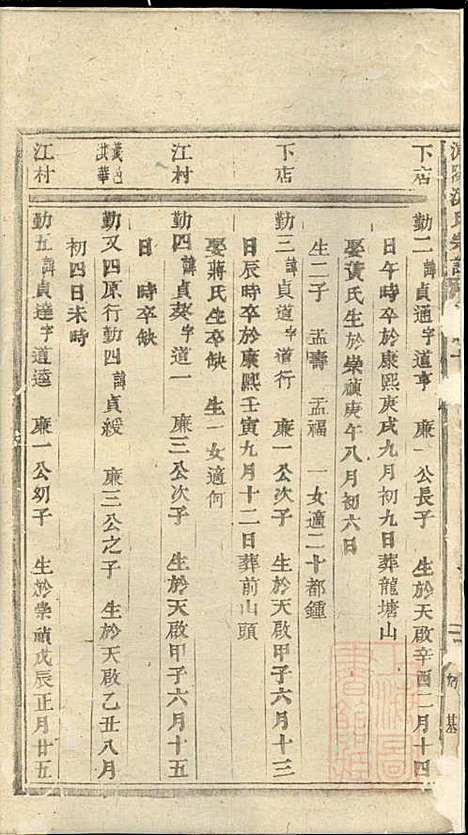 下店
勤二諱貞通字道亨 廉一公長子 生於天啟辛酉二月十四
日午時卒於康熙庚戌九月初九日葬龍塘山
娶黃氏生於崇禎庚午八月初六日
生二子 孟壽 孟福 一女適二十都鍾
下店
勤三諱貞道字道行 廉一公次子 生於天啟甲子六月十三
日辰時卒於康熙壬寅九月十二日葬前山頭
娶蔣氏生卒缺 生一女適何
江村
勤四諱貞葵字道一 廉三公次子 生於天啟甲子六月十五
日 時卒缺
勤又四原行勤四諱貞緩 廉三公之子 生於天啟乙丑八月
初四日未時
江村
勤五諱貞達字道達 廉一公幼子 生於崇禎戊辰正月廿五